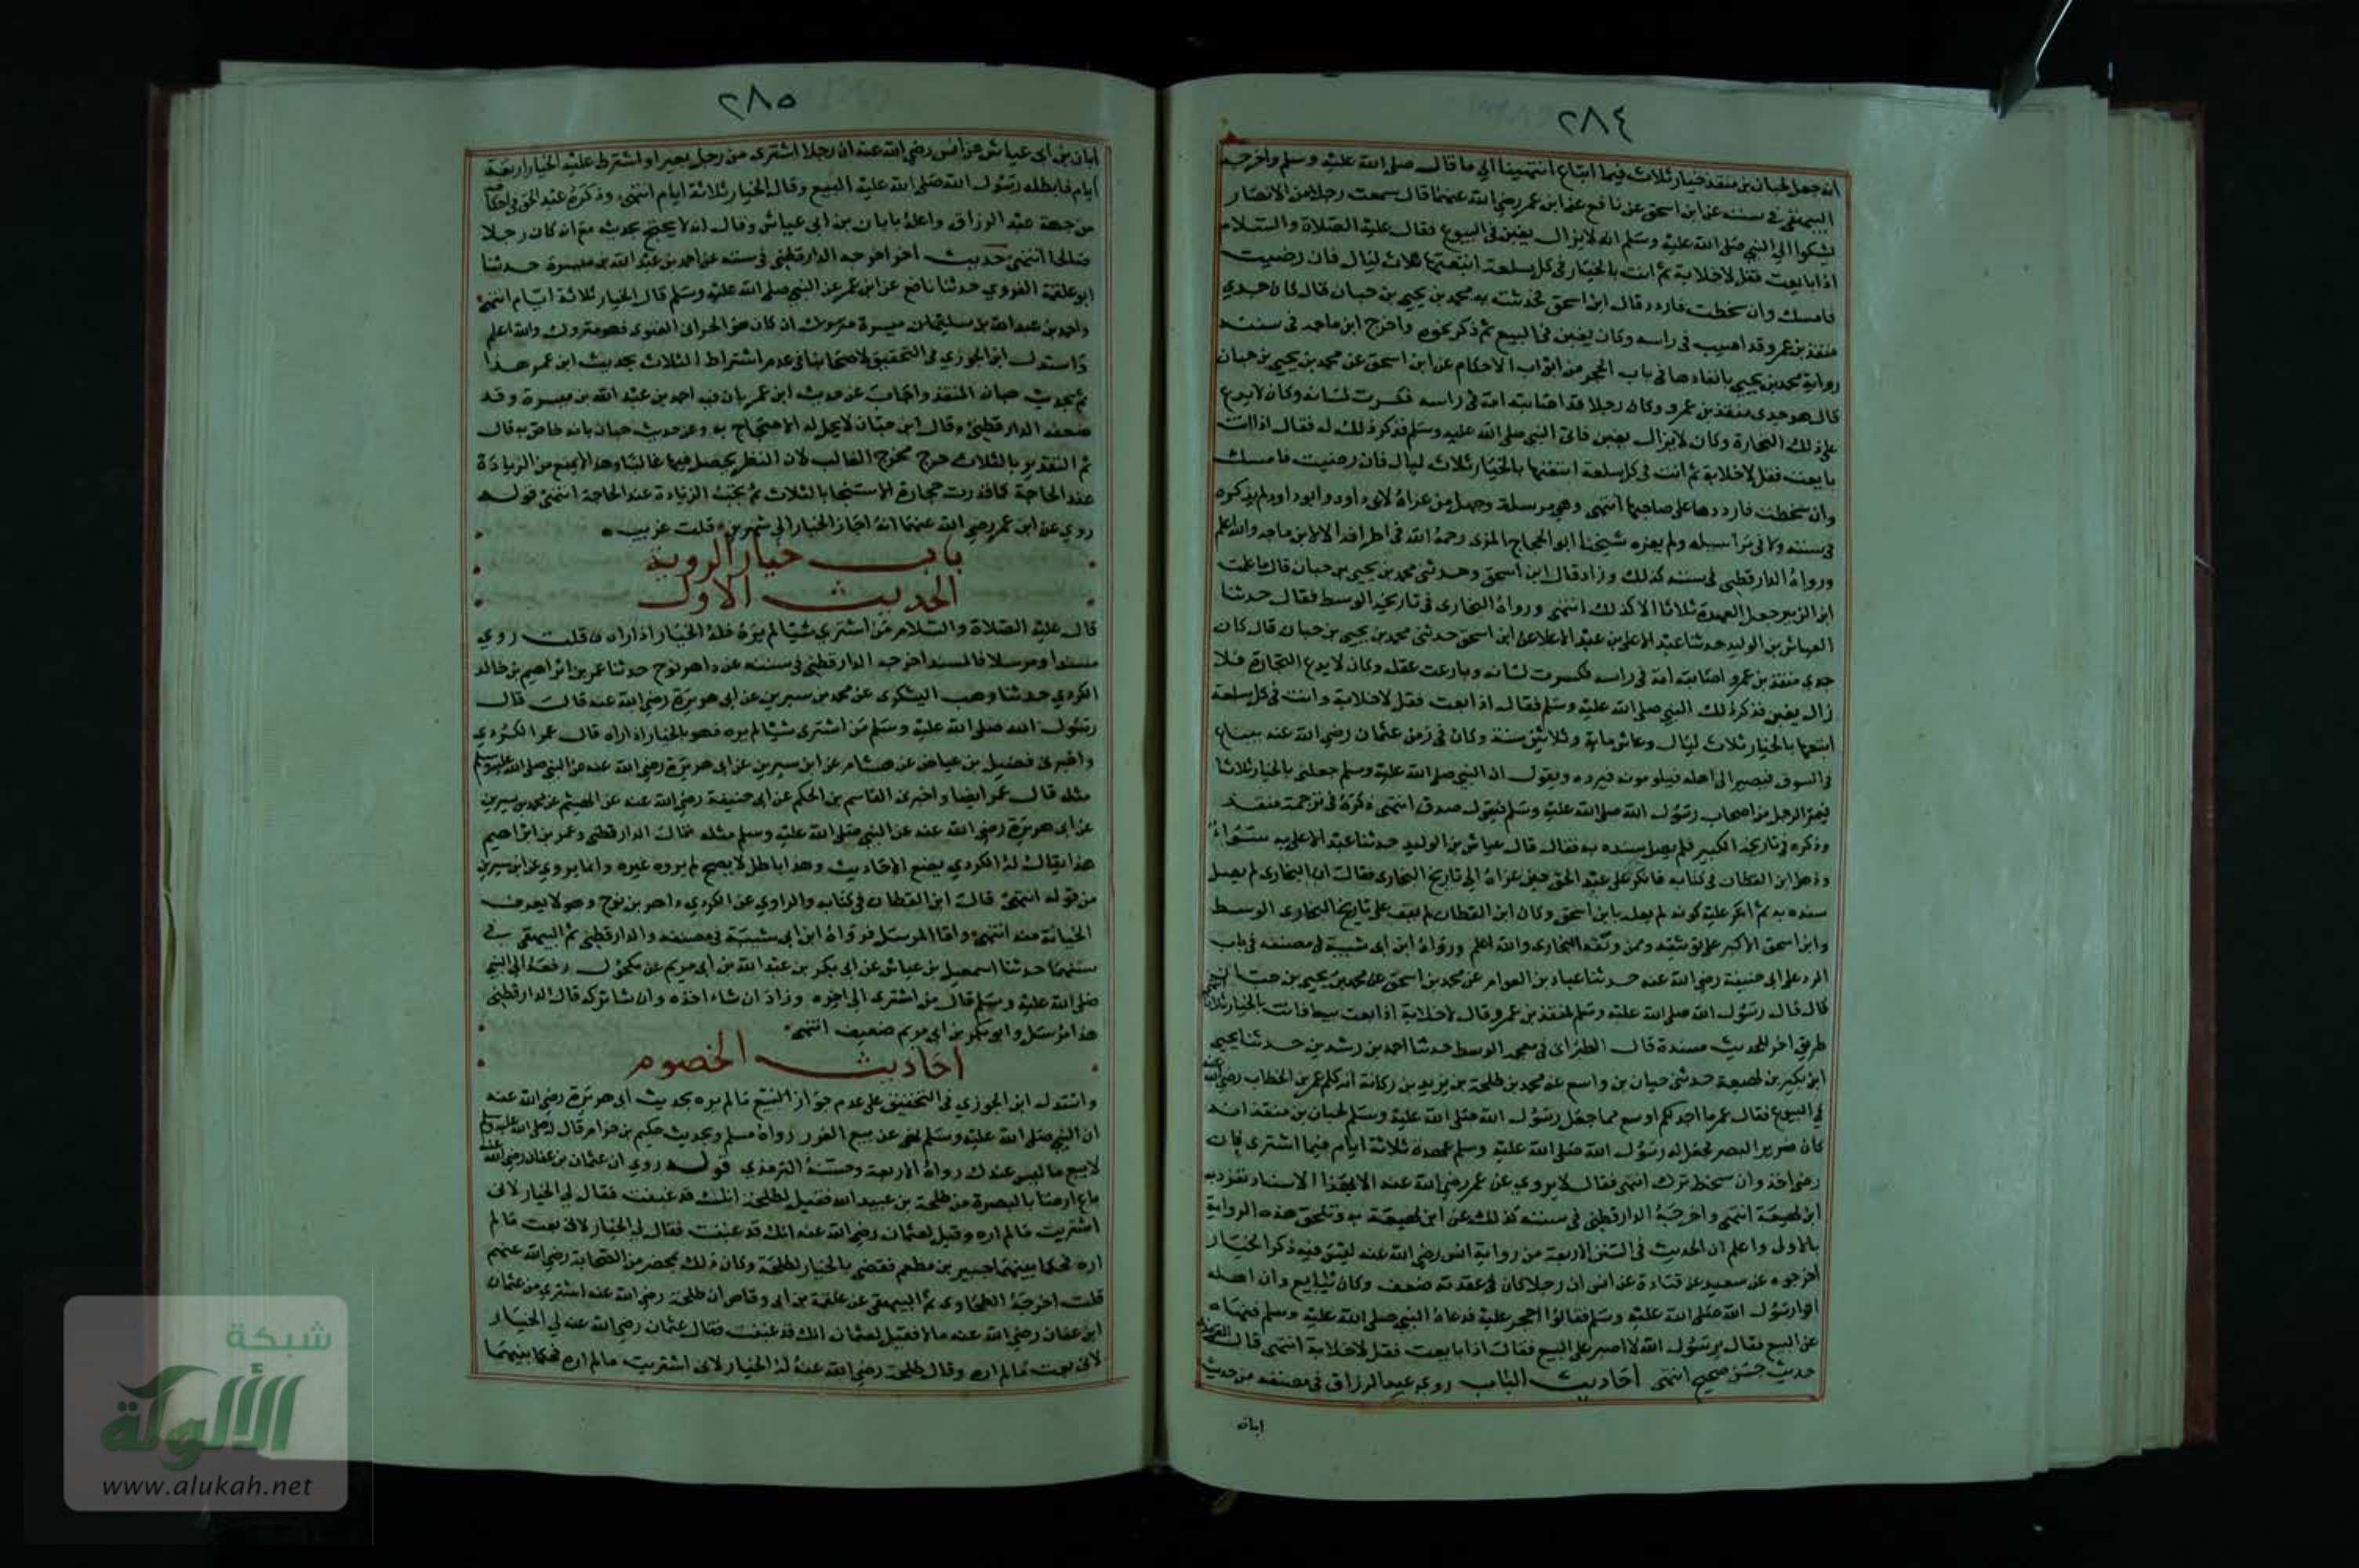 ٢٨٤
انه جعل لحبان بن منقذ خيار ثلاث فيما ابتاع انتهينا الى ما قال صلى الله عليه وسلم واخرجه
البيهقي في سننه عن ابن اسحق عن نافع عن ابن عمر رضي الله عنهما قال سمعت رجلا من الانصار
يشكوا الى النبي صلى الله عليه وسلم انه لا يزال يغبن في البيوع فقال عليه الصلاة والسلام
اذا بايعت فقل لا خلابة ثم انت بالخيار في كل سلعة ابتعتها ثلاث ليال فان رضيت
فامسك وان سخطت فاردد قال ابن اسحق فحدثت به محمد بن يحيى بن حبان قال كان جدي
منقذ بن عمرو قد اصيب في راسه وكان يغبن في البيع ثم ذكر نحوه واخرج ابن ماجه في سننه
رواية محمد بن يحيى بانفادها في باب الحجر من ابواب الاحكام عن ابن اسحق عن محمد بن يحيى بن حبان
قال هو جدي منقذ بن عمرو وكان رجلا قد اصابته امة في راسه فكسرت لسانه وكان لا يدع
على ذلك التجارة وكان لا يزال يغبن فاتى النبي صلى الله عليه وسلم فذكر ذلك له فقال اذا انت
بايعت فقل لا خلابة ثم انت في كل سلعة ابتعتها بالخيار ثلاث ليال فان رضيت فامسك
وان سخطت فارددها على صاحبها انتهى وهي مرسلة وجهل من عزاه لابي داود وابو داود لم يذكره
في سننه ولا في مراسيله ولم يعزه شيخنا ابو الحجاج المزى رحمه الله في اطرافه الا لابن ماجه والله اعلم
ورواه الدارقطني في سننه كذلك وزاد قال ابن اسحق وحدثني محمد بن يحيى بن حبان قال ما علمت
ابن الزبير جعل العهدة ثلاثا الا كذلك انتهى ورواه البخارى في تاريخه الوسط فقال حدثنا
العياش بن الوليد حدثنا عبد الاعلى بن عبد الاعلا عن ابن اسحق حدثني محمد بن يحيى بن حبان قال كان
جدي منقذ بن عمرو اصابته امة في راسه فكسرت لسانه وبارعت عقله وكان لا يدع التجارة فلا
زال يغبن فذكر ذلك النبي صلى الله عليه وسلم فقال اذا بعت فقل لا خلابة وانت في كل سلعة
ابتعها بالخيار ثلاث ليال وعاش ماية وثلاثين سنة وكان في زمن عثمان رضي الله عنه يبتاع
في السوق فيصير الى اهله فيلومونه فيرده ويقول ان النبي صلى الله عليه وسلم جعلني بالخيار ثلاثا
فيمر الرجل من اصحاب رسول الله صلى الله عليه وسلم فيقول صدق انتهى ذكره في ترجمة منقذ
وذكره في تاريخه الكبير فلم يصل سنده به فقال قال عياش بن الوليد حدثنا عبد الاعلى به سواء
وذهل ابن القطان في كتابه فانكر على عبد الحق حين عزاه الى تاريخ البخارى فقال ان البخارى لم يصل
سنده به ثم انكر عليه كونه لم يعله بابن اسحق وكان ابن القطان لم يقف على تاريخ البخارى الوسط
وابن اسحق الاكبر على توثيقه وممن وثقه البخارى والله اعلم ورواه ابن ابى شيبة في مصنفه في باب
الرد على ابى حنيفة رضي الله عنه حدثنا عباد بن العوام عن محمد بن اسحق عن محمد بن يحيى بن حبان
قال قال رسول الله صلى الله عليه وسلم لمنقذ بن عمرو قال لا خلابة اذا بعت بيعا فانت بالخيار ثلاثا انتهى
طريق اخر للحديث مسندة قال الطبراني في معجمه الوسط حدثنا احمد بن رشدين حدثنا يحيى
ابن بكير بن لهيعة حدثني حبان بن واسع عن محمد بن طلحة بن يزيد بن ركانة انه كلم عمر بن الخطاب رضي الله عنه
في البيوع فقال عمر ما اجد لكم اوسع مما جعل رسول الله صلى الله عليه وسلم لحبان بن منقذ انه
كان ضرير البصر فجعل له رسول الله صلى الله عليه وسلم عهدة ثلاثة ايام فيما اشترى فان
رضى اخذ وان سخط ترك انتهى فقال لا يروي عن عمر رضي الله عنه الا بهذا الاسناد تفرد به
ابن لهيعة انتهى واخرجه الدارقطني في سننه كذلك عن ابن لهيعة به وتلحق هذه الرواية
بالاولى واعلم ان الحديث في السنن الاربعة من رواية انس رضي الله عنه ليس فيه ذكر الخيار
اخرجوه عن سعيد عن قتادة عن انس ان رجلا كان في عقدته ضعف وكان يبايع وان اهله
اتوا رسول الله صلى الله عليه وسلم فقالوا احجر عليه فدعاه النبي صلى الله عليه وسلم فنهاه
عن البيع فقال يرسول الله لا اصبر على البيع فقال اذا بايعت فقل لا خلابة انتهى قال الترمذي
حديث حسن صحيح انتهى احاديث الباب روى عبد الرزاق في مصنفه من حديث
ابان
٢٨٥
ابان بن ابى عياش عن انس رضي الله عنه ان رجلا اشترى من رجل بعيرا واشترط عليه الخيار اربعة
ايام فابطله رسول الله صلى الله عليه البيع وقال الخيار ثلاثة ايام انتهى وذكره عبد الحق في احكامه
من جهة عبد الرزاق واعله بابان بن ابى عياش وقال انه لا يحتج بحديثه مع انه كان رجلا
صالحا انتهى حديث اخر اخرجه الدارقطني في سننه عن احمد بن عبد الله بن ميسرة حدثنا
ابو علقمة الفروي حدثنا نافع عن ابن عمر عن النبي صلى الله عليه وسلم قال الخيار ثلاثة ايام انتهى
واحمد بن عبد الله بن ميسرة متروك ان كان هو الحرانى الغنوى فهو متروك والله اعلم
واستدل ابن الجوزي في التحقيق لاصحابنا في عدم اشتراط الثلاث بحديث ابن عمر هذا
ثم بحديث حبان المنقذ واجاب عن حديث ابن عمر بان فيه احمد بن عبد الله بن ميسرة وقد
ضعفه الدارقطني وقال ابن حبان لا يحل له الاحتجاج به وعن حديث حبان بانه خاص به قال
ثم التقدير بالثلاث خرج مخرج الغالب لان النظر يحصل فيها غالبا وهذا لا يمنع من الزيادة
عند الحاجة كما قدرت حجارة الاستنجا بالثلاث ثم تجب الزيادة عند الحاجة انتهى قوله
روي عن ابن عمر رضي الله عنهما انه اجاز الخيار الى شهرين قلت غريب
باب خيار الروية
الحديث الاول
قال عليه الصلاة والسلام من اشترى شيئا لم يره فله الخيار اذا راه قلت روي
مسندا ومرسلا فالمسند اخرجه الدارقطني في سننه عن داهر بن نوح حدثنا عمر بن ابراهيم بن خالد
الكردي حدثنا وهب اليشكرى عن محمد بن سيرين عن ابى هريرة رضي الله عنه قال قال
رسول الله صلى الله عليه وسلم من اشترى شيئا لم يره فهو بالخيار اذا راه قال عمر الكردي
واخبرنى فضيل بن عياض عن هشام عن ابن سيرين عن ابى هريرة رضي الله عنه عن النبي صلى الله عليه وسلم
مثله قال عمر ايضا واخبرنى القاسم بن الحكم عن ابى حنيفة رضي الله عنه عن الهيثم عن محمد بن سيرين
عن ابى هريرة رضي الله عنه عن النبي صلى الله عليه وسلم مثله قال الدارقطني وعمر بن ابراهيم
هذا يقال له الكردي يضع الاحاديث وهذا باطل لا يصح لم يروه غيره وانما يروي عن ابن سيرين
من قوله انتهى قال ابن القطان في كتابه والراوي عن الكردي داهر بن نوح وهو لا يعرف
الجناية منه انتهى واما المرسل فرواه ابن ابى شيبة في مصنفه والدارقطني ثم البيهقي في
سننهما حدثنا اسمعيل بن عياش عن ابى بكر بن عبد الله بن ابى مريم عن مكحول رفعه الى النبي
صلى الله عليه وسلم قال من اشترى الى اخره وزاد ان شاء اخذه وان شا تركه قال الدارقطني
هذا مرسل وابو بكر بن ابى مريم ضعيف انتهى
احاديث الخصوم
واستدل ابن الجوزي في التحقيق على عدم جواز البيع ما لم يره بحديث ابى هريرة رضي الله عنه
ان النبي صلى الله عليه وسلم نهى عن بيع الغرر رواه مسلم وبحديث حكيم بن حزام قال صلى الله عليه وسلم
لا بيع ما ليس عندك رواه الاربعة وحسنه الترمذي قوله روي ان عثمان بن عفان رضي الله عنه
باع ارضا بالبصرة من طلحة بن عبيد الله فقيل لطلحة انك قد غبنت فقال لي الخيار لانى
اشتريت ما لم اره وقيل لعثمان رضي الله عنه انك قد غبنت فقال لي الخيار لانى بعت ما لم
اره فحكما بينهما جبير بن مطعم فقضى بالخيار لطلحة وكان ذلك بمحضر من الصحابة رضي الله عنهم
قلت اخرجه الطحاوى ثم البيهقي عن علقمة بن ابى وقاص ان طلحة رضي الله عنه اشترى من عثمان
ابن عفان رضي الله عنه مالا فقيل لعثمان انك قد غبنت فقال عثمان رضي الله عنه لي الخيار
لانى بعت ما لم اره وقال طلحة رضي الله عنه له الخيار لانى اشتريت ما لم اره فحكما بينهما
شبكة
الألوكة
www.alukah.net